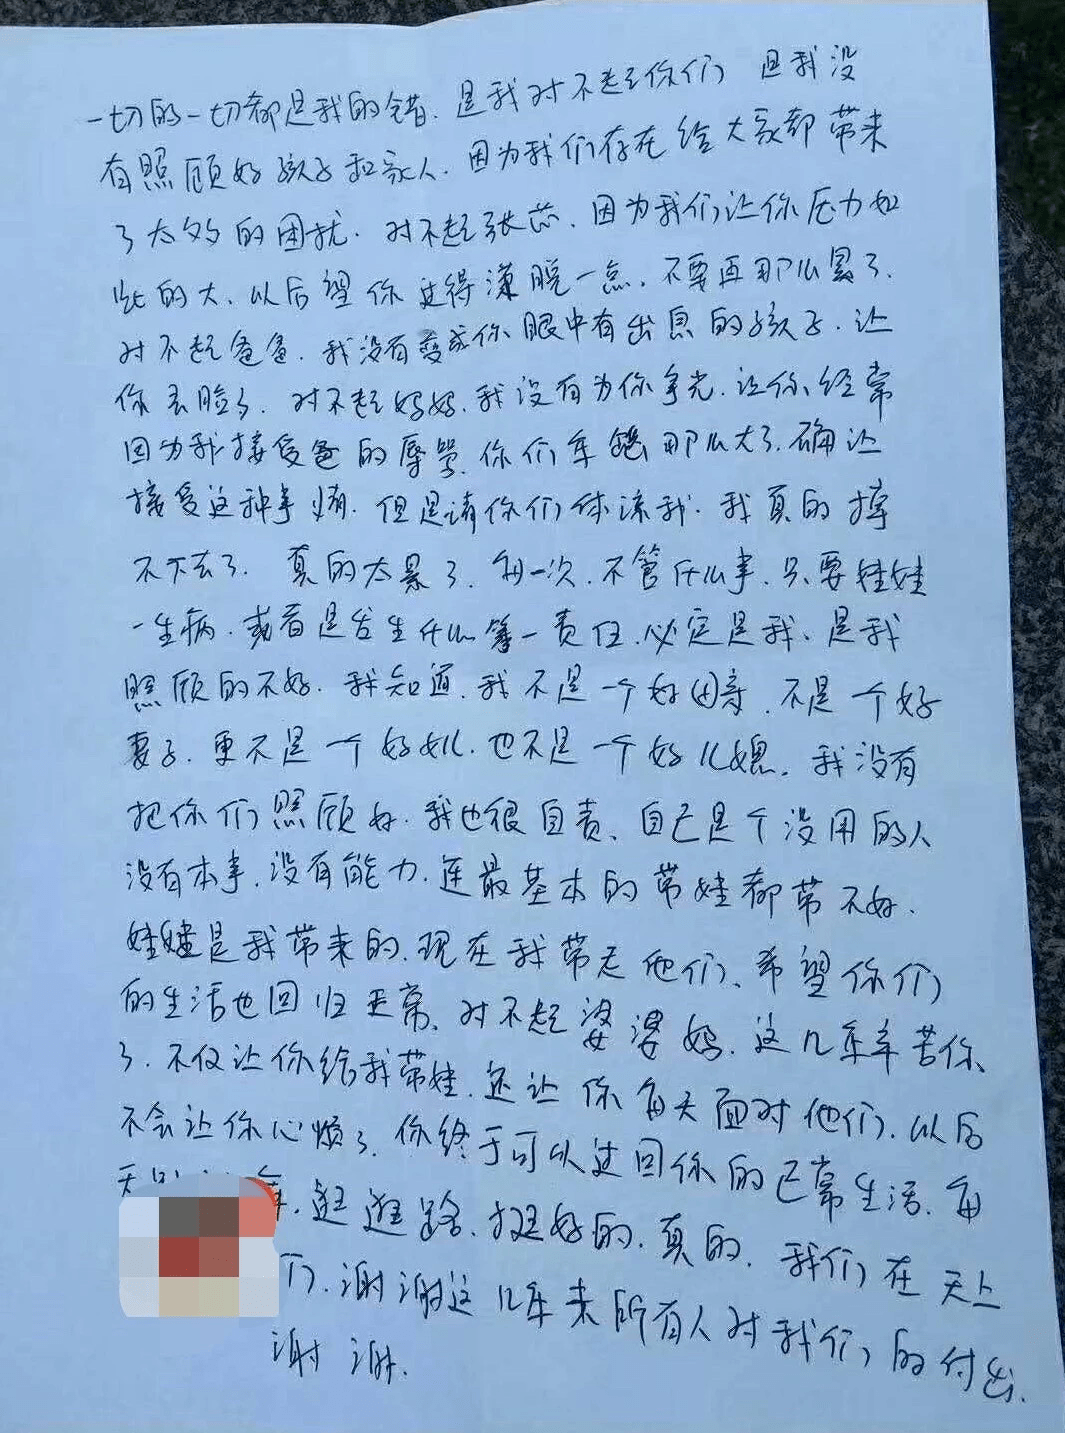 一切的一切都是我的错.是我对不起你们 是我没
有照顾好孩子和家人.因为我们存在给大家都带来
了太多的困扰.对不起张芯.因为我们让你压力如
此的大.以后望你过得潇脱一点.不要再那么累了.
对不起爸爸.我没有变成你眼中有出息的孩子.让
你丢脸了.对不起妈妈.我没有为你争光.让你经常
因为我接受爸的辱骂.你们年龄那么大了.确让
接受这种事情.但是请你们体谅我.我真的撑
不下去了.真的太累了.每一次.不管什么事.只要娃娃
一生病.或者是发生什么第一责任.必定是我、是我
照顾的不好.我知道.我不是一个好母亲.不是一个好
妻子.更不是一个好女儿.也不是一个好儿媳.我没有
把你们照顾好.我也很自责、自己是个没用的人
没有本事.没有能力.连最基本的带娃都带不好.
娃娃是我带来的.现在我带走他们、希望你们
的生活也回归正常、对不起婆婆妈.这几年辛苦你
了.不仅让你给我带娃.还让你每天面对他们.以后
不会让你心烦了.你终于可以过回你的正常生活.每
天 .逛逛路.挺好的.真的.我们在天上
们.谢谢这几年来所有人对我们的付出.
谢谢.